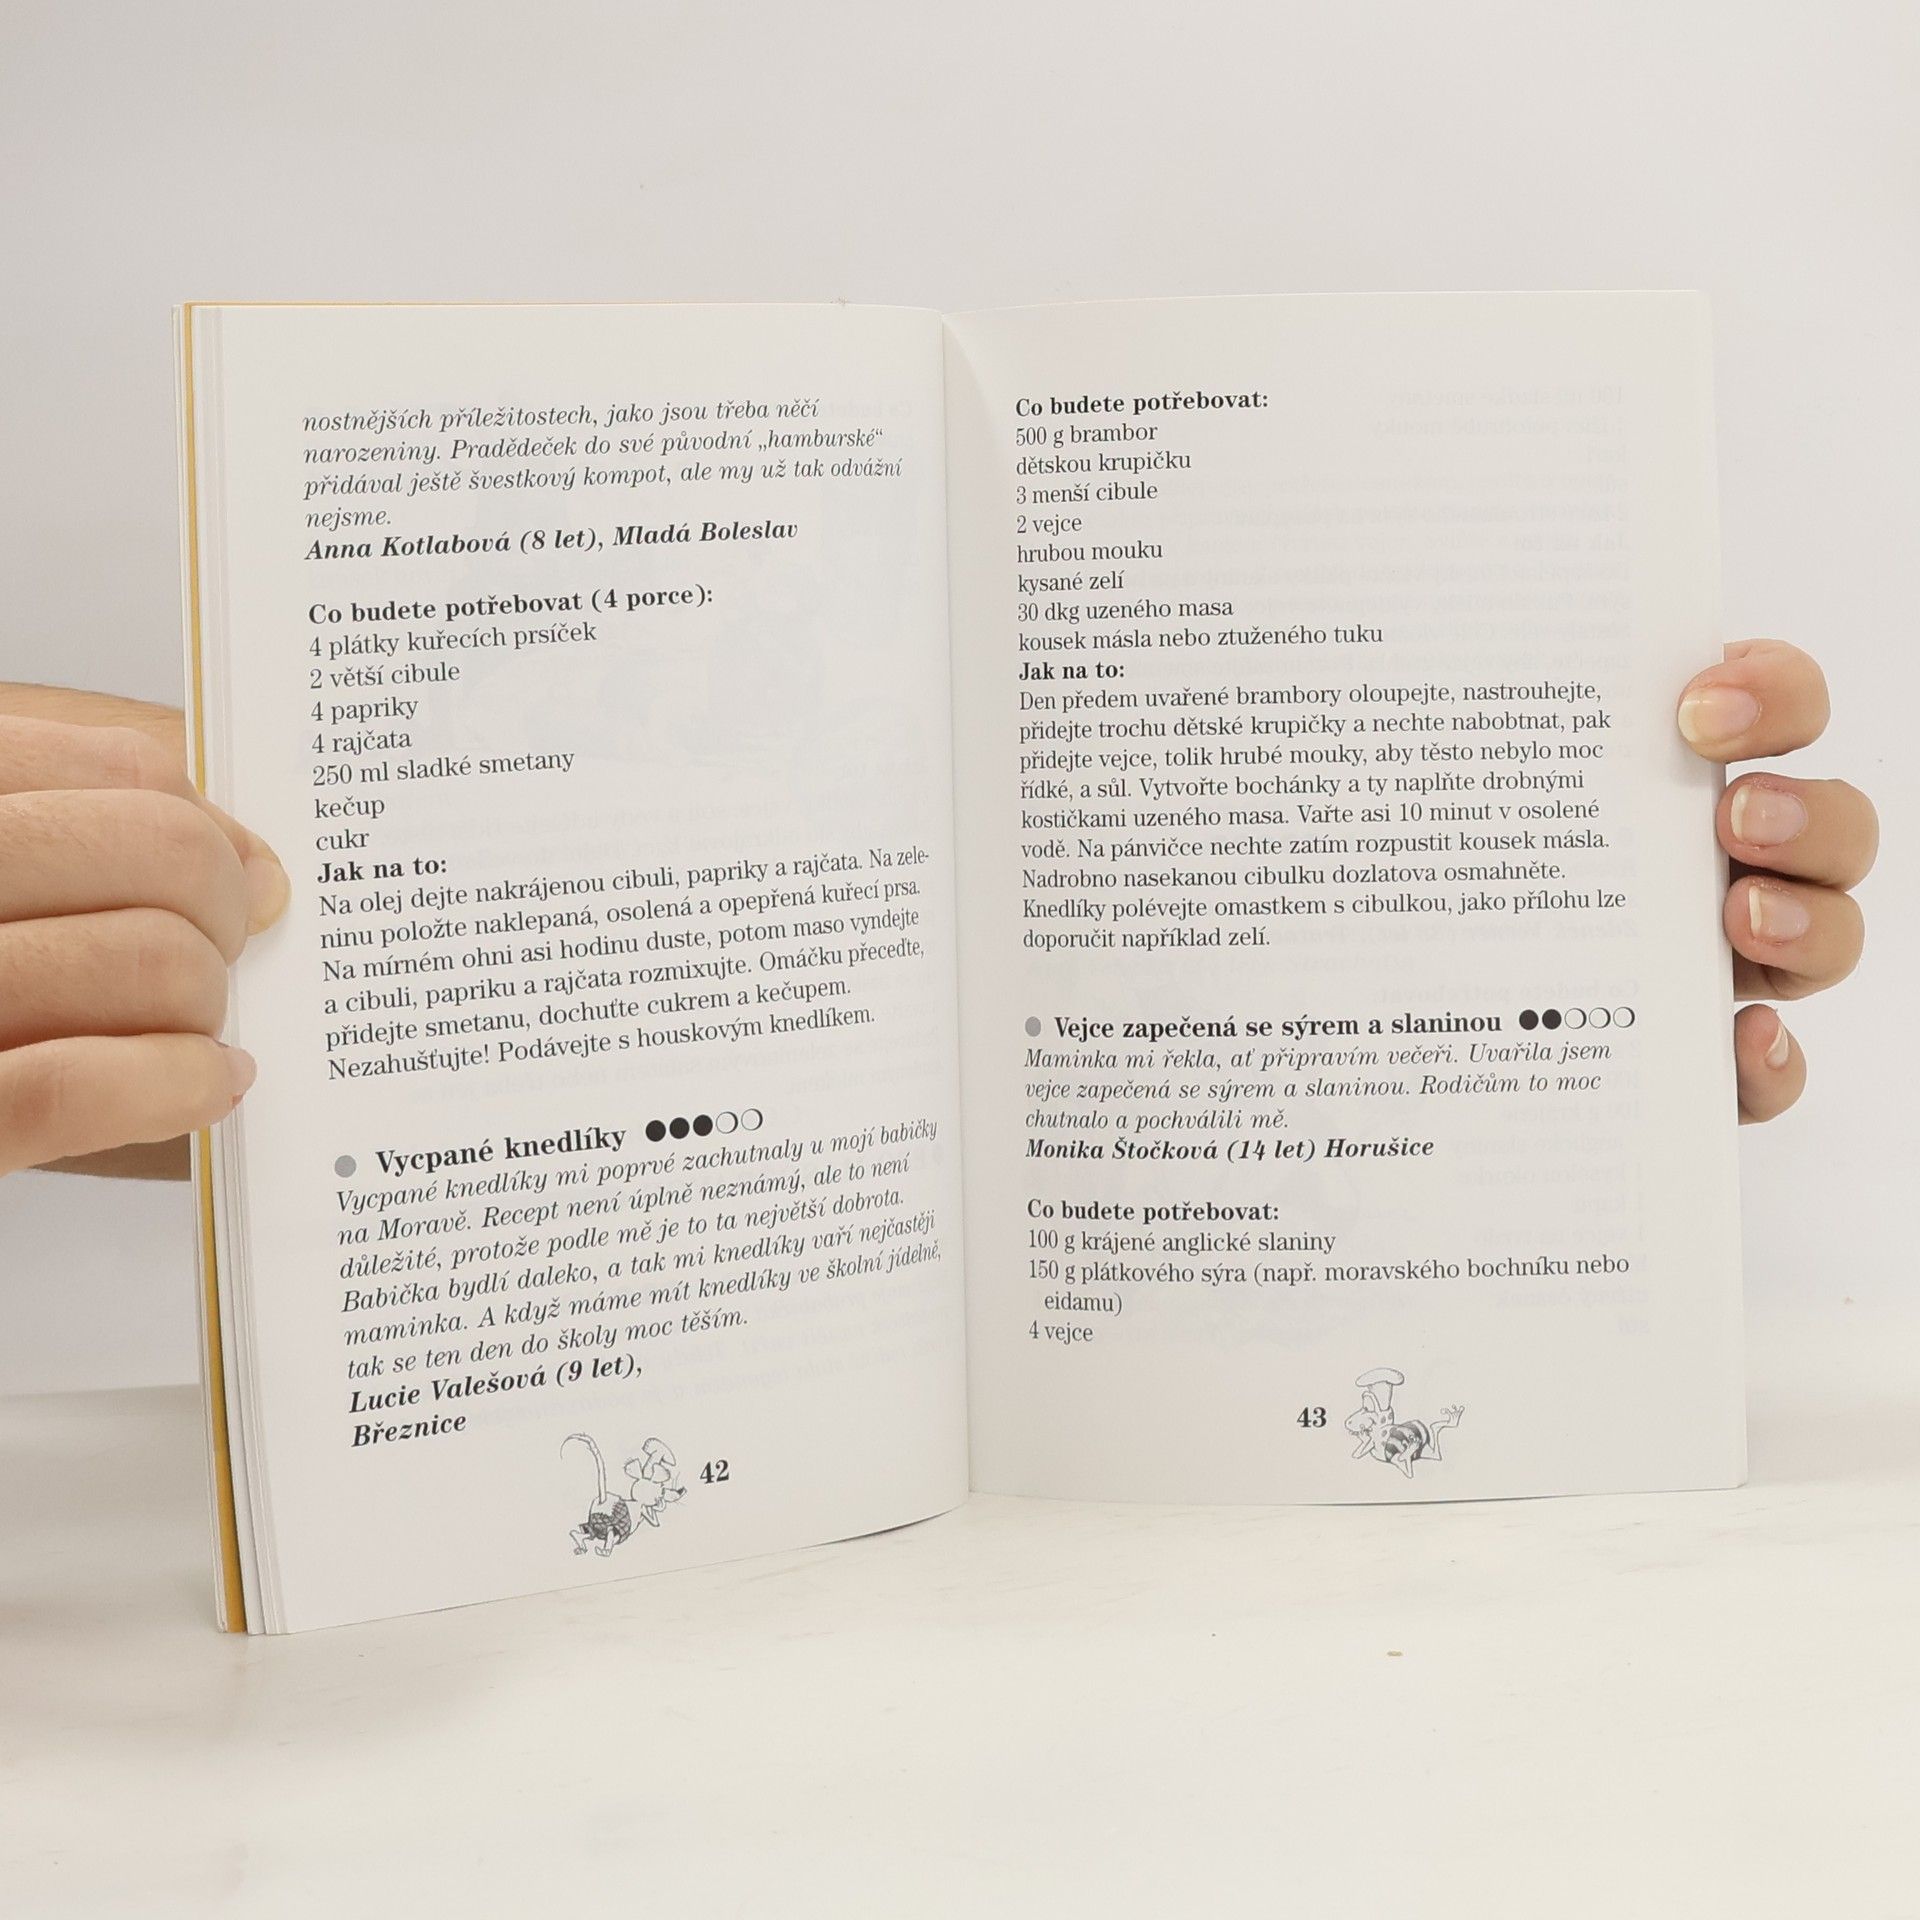 nostnějších příležitostech, jako jsou třeba něčí
narozeniny. Pradědeček do své původní „hamburské“
přidával ještě švestkový kompot, ale my už tak odvážní
nejsme.
Anna Kotlabová (8 let), Mladá Boleslav
Co budete potřebovat (4 porce):
4 plátky kuřecích prsíček
2 větší cibule
4 papriky
4 rajčata
250 ml sladké smetany
kečup
cukr
Jak na to:
Na olej dejte nakrájenou cibuli, papriky a rajčata. Na zele-
ninu položte naklepaná, osolená a opepřená kuřecí prsa.
Na mírném ohni asi hodinu duste, potom maso vyndejte
a cibuli, papriku a rajčata rozmixujte. Omáčku přeceďte,
přidejte smetanu, dochuťte cukrem a kečupem.
Nezahušťujte! Podávejte s houskovým knedlíkem.
Vycpané knedlíky
Vycpané knedlíky mi poprvé zachutnaly u mojí babičky
na Moravě. Recept není úplně neznámý, ale to není
důležité, protože podle mě je to ta největší dobrota.
Babička bydlí daleko, a tak mi knedlíky vaří nejčastěji
maminka. A když máme mít knedlíky ve školní jídelně,
tak se ten den do školy moc těším.
Lucie Valešová (9 let),
Březnice
42
Co budete potřebovat:
500 g brambor
dětskou krupičku
3 menší cibule
2 vejce
hrubou mouku
kysané zelí
30 dkg uzeného masa
kousek másla nebo ztuženého tuku
Jak na to:
Den předem uvařené brambory oloupejte, nastrouhejte,
přidejte trochu dětské krupičky a nechte nabobtnat, pak
přidejte vejce, tolik hrubé mouky, aby těsto nebylo moc
řídké, a sůl. Vytvořte bochánky a ty naplňte drobnými
kostičkami uzeného masa. Vařte asi 10 minut v osolené
vodě. Na pánvičce nechte zatím rozpustit kousek másla.
Nadrobno nasekanou cibulku dozlatova osmahněte.
Knedlíky polévejte omastkem s cibulkou, jako přílohu lze
doporučit například zelí.
Vejce zapečená se sýrem a slaninou
Maminka mi řekla, ať připravím večeři. Uvařila jsem
vejce zapečená se sýrem a slaninou. Rodičům to moc
chutnalo a pochválili mě.
Monika Štočková (14 let) Horušice
Co budete potřebovat:
100 g krájené anglické slaniny
150 g plátkového sýra (např. moravského bochníku nebo
eidamu)
4 vejce
43